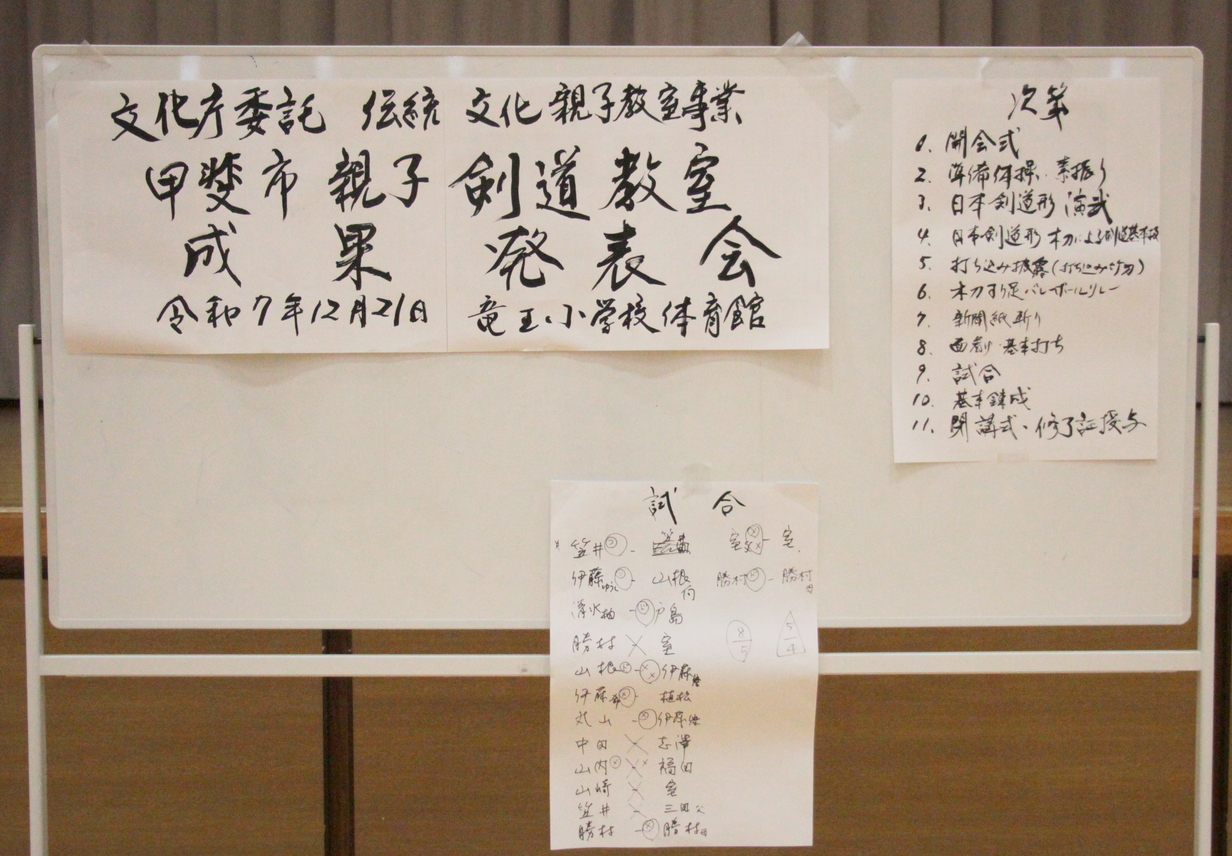 文化庁委託 伝統文化親子教室事業
甲斐市親子剣道教室
成果発表会
令和7年12月21日 竜王小学校体育館
次第
1. 開会式
2. 準備体操・素振り
3. 日本剣道形 演武
4. 日本剣道形 木刀による剣道基本技
5. 打ち込み披露
6. 木刀すり足バレーボールリレー
7. 新聞紙斬り
8. 面割り・基本打ち
9. 試合
10. 基本錬成
11. 閉講式・修了証授与
試合
笠井 -
室 - 室
伊藤 - 山根
勝村 - 勝村
戸島
8/5
5/4
勝村 × 室
山根 - 伊藤
伊藤 - 植松
丸山 - 伊藤
中田 × 志澤
山内 × 福田
山崎 × 室
笠井 三田父
勝村 - 勝村